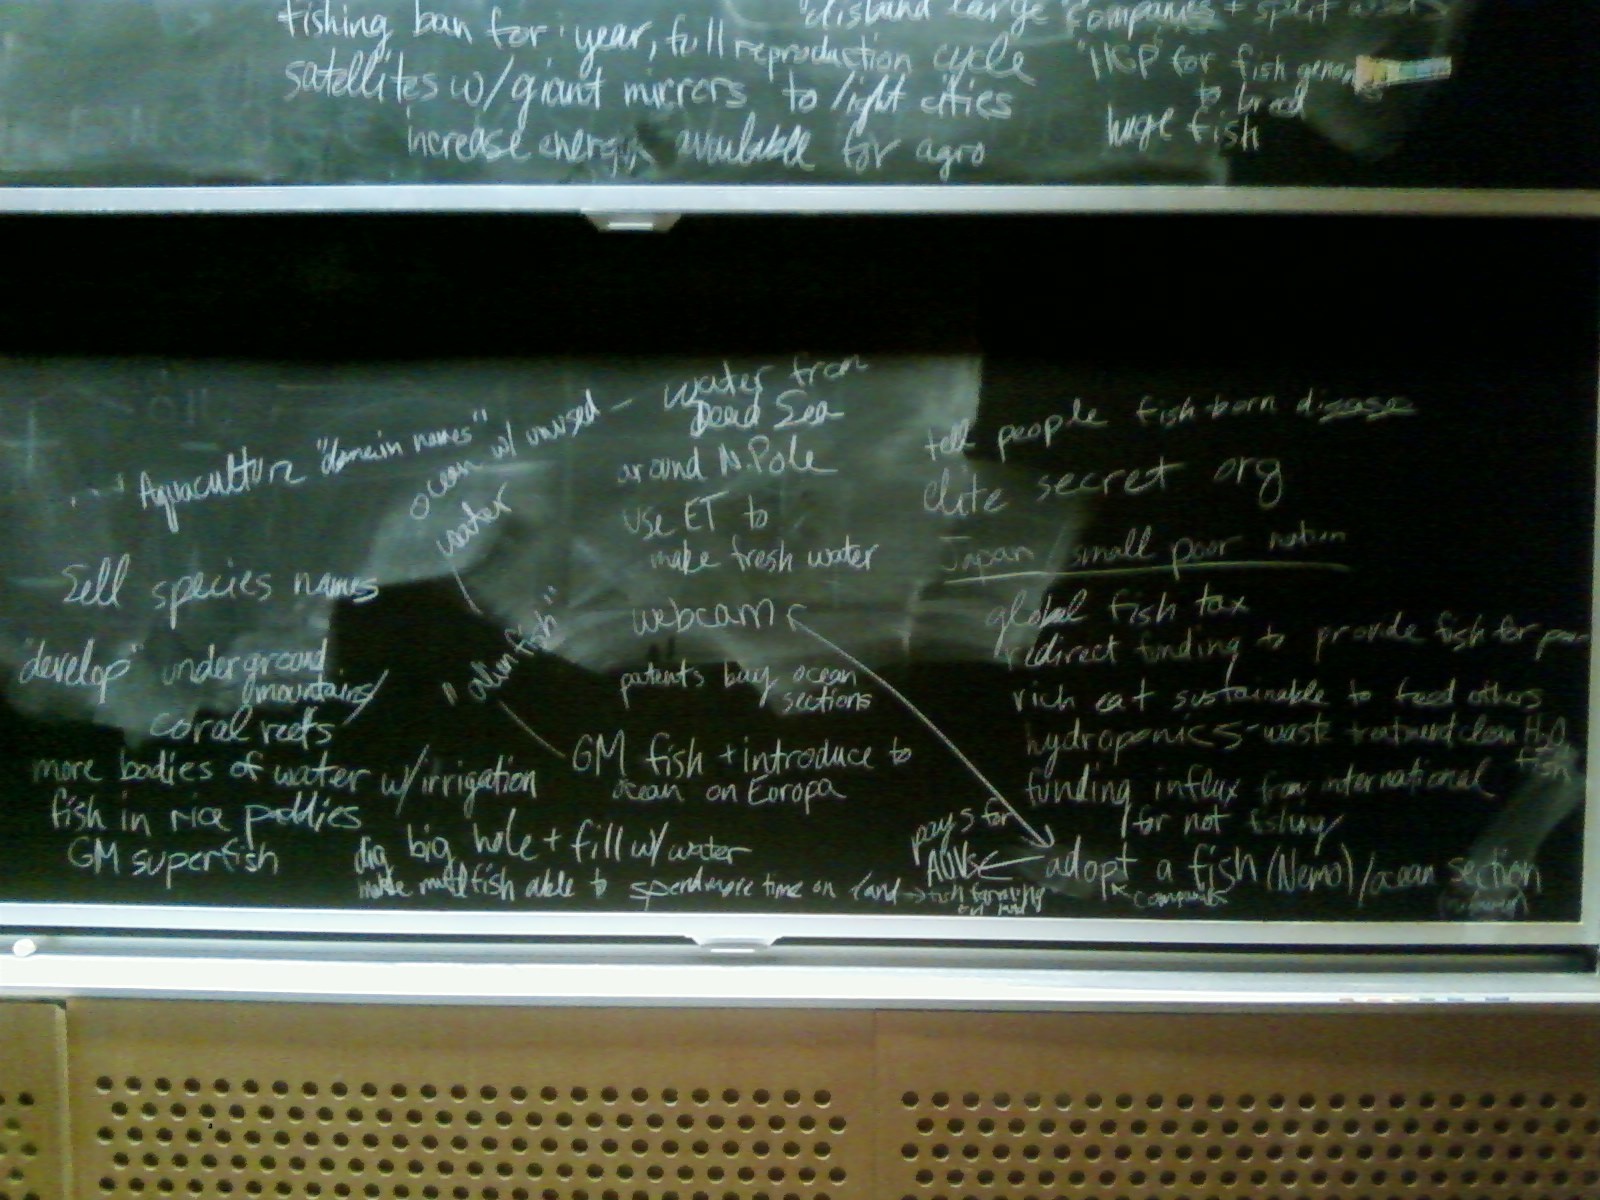 fishing ban for 1 year, full reproduction cycle
satellites w/giant mirrors to light cities
increase energy available for agro
"disband large companies + split
"HGP" for fish genome
to breed
huge fish
Aquaculture "domain names"
ocean w/ unused
water
"alien fish"
Sell species names
"develop" underground
mountains/
coral reefs
more bodies of water w/irrigation
fish in rice paddies
GM superfish
water from
Dead Sea
around N. Pole
use ET to
make fresh water
webcams
patents buy ocean
sections
GM fish + introduce to
ocean on Europa
dig big hole + fill w/ water
make fish able to spend more time on land → fish farming
on land
tell people fish-born disease
elite secret org
Japan small poor nation
global fish tax
redirect funding to provide fish for poor
rich eat sustainable to feed others
hydroponics-waste treatment clean H2O
fish
funding influx from international
/for not fishing/
pays for
AUVs
adopt a fish (Nemo)/ocean section
companies